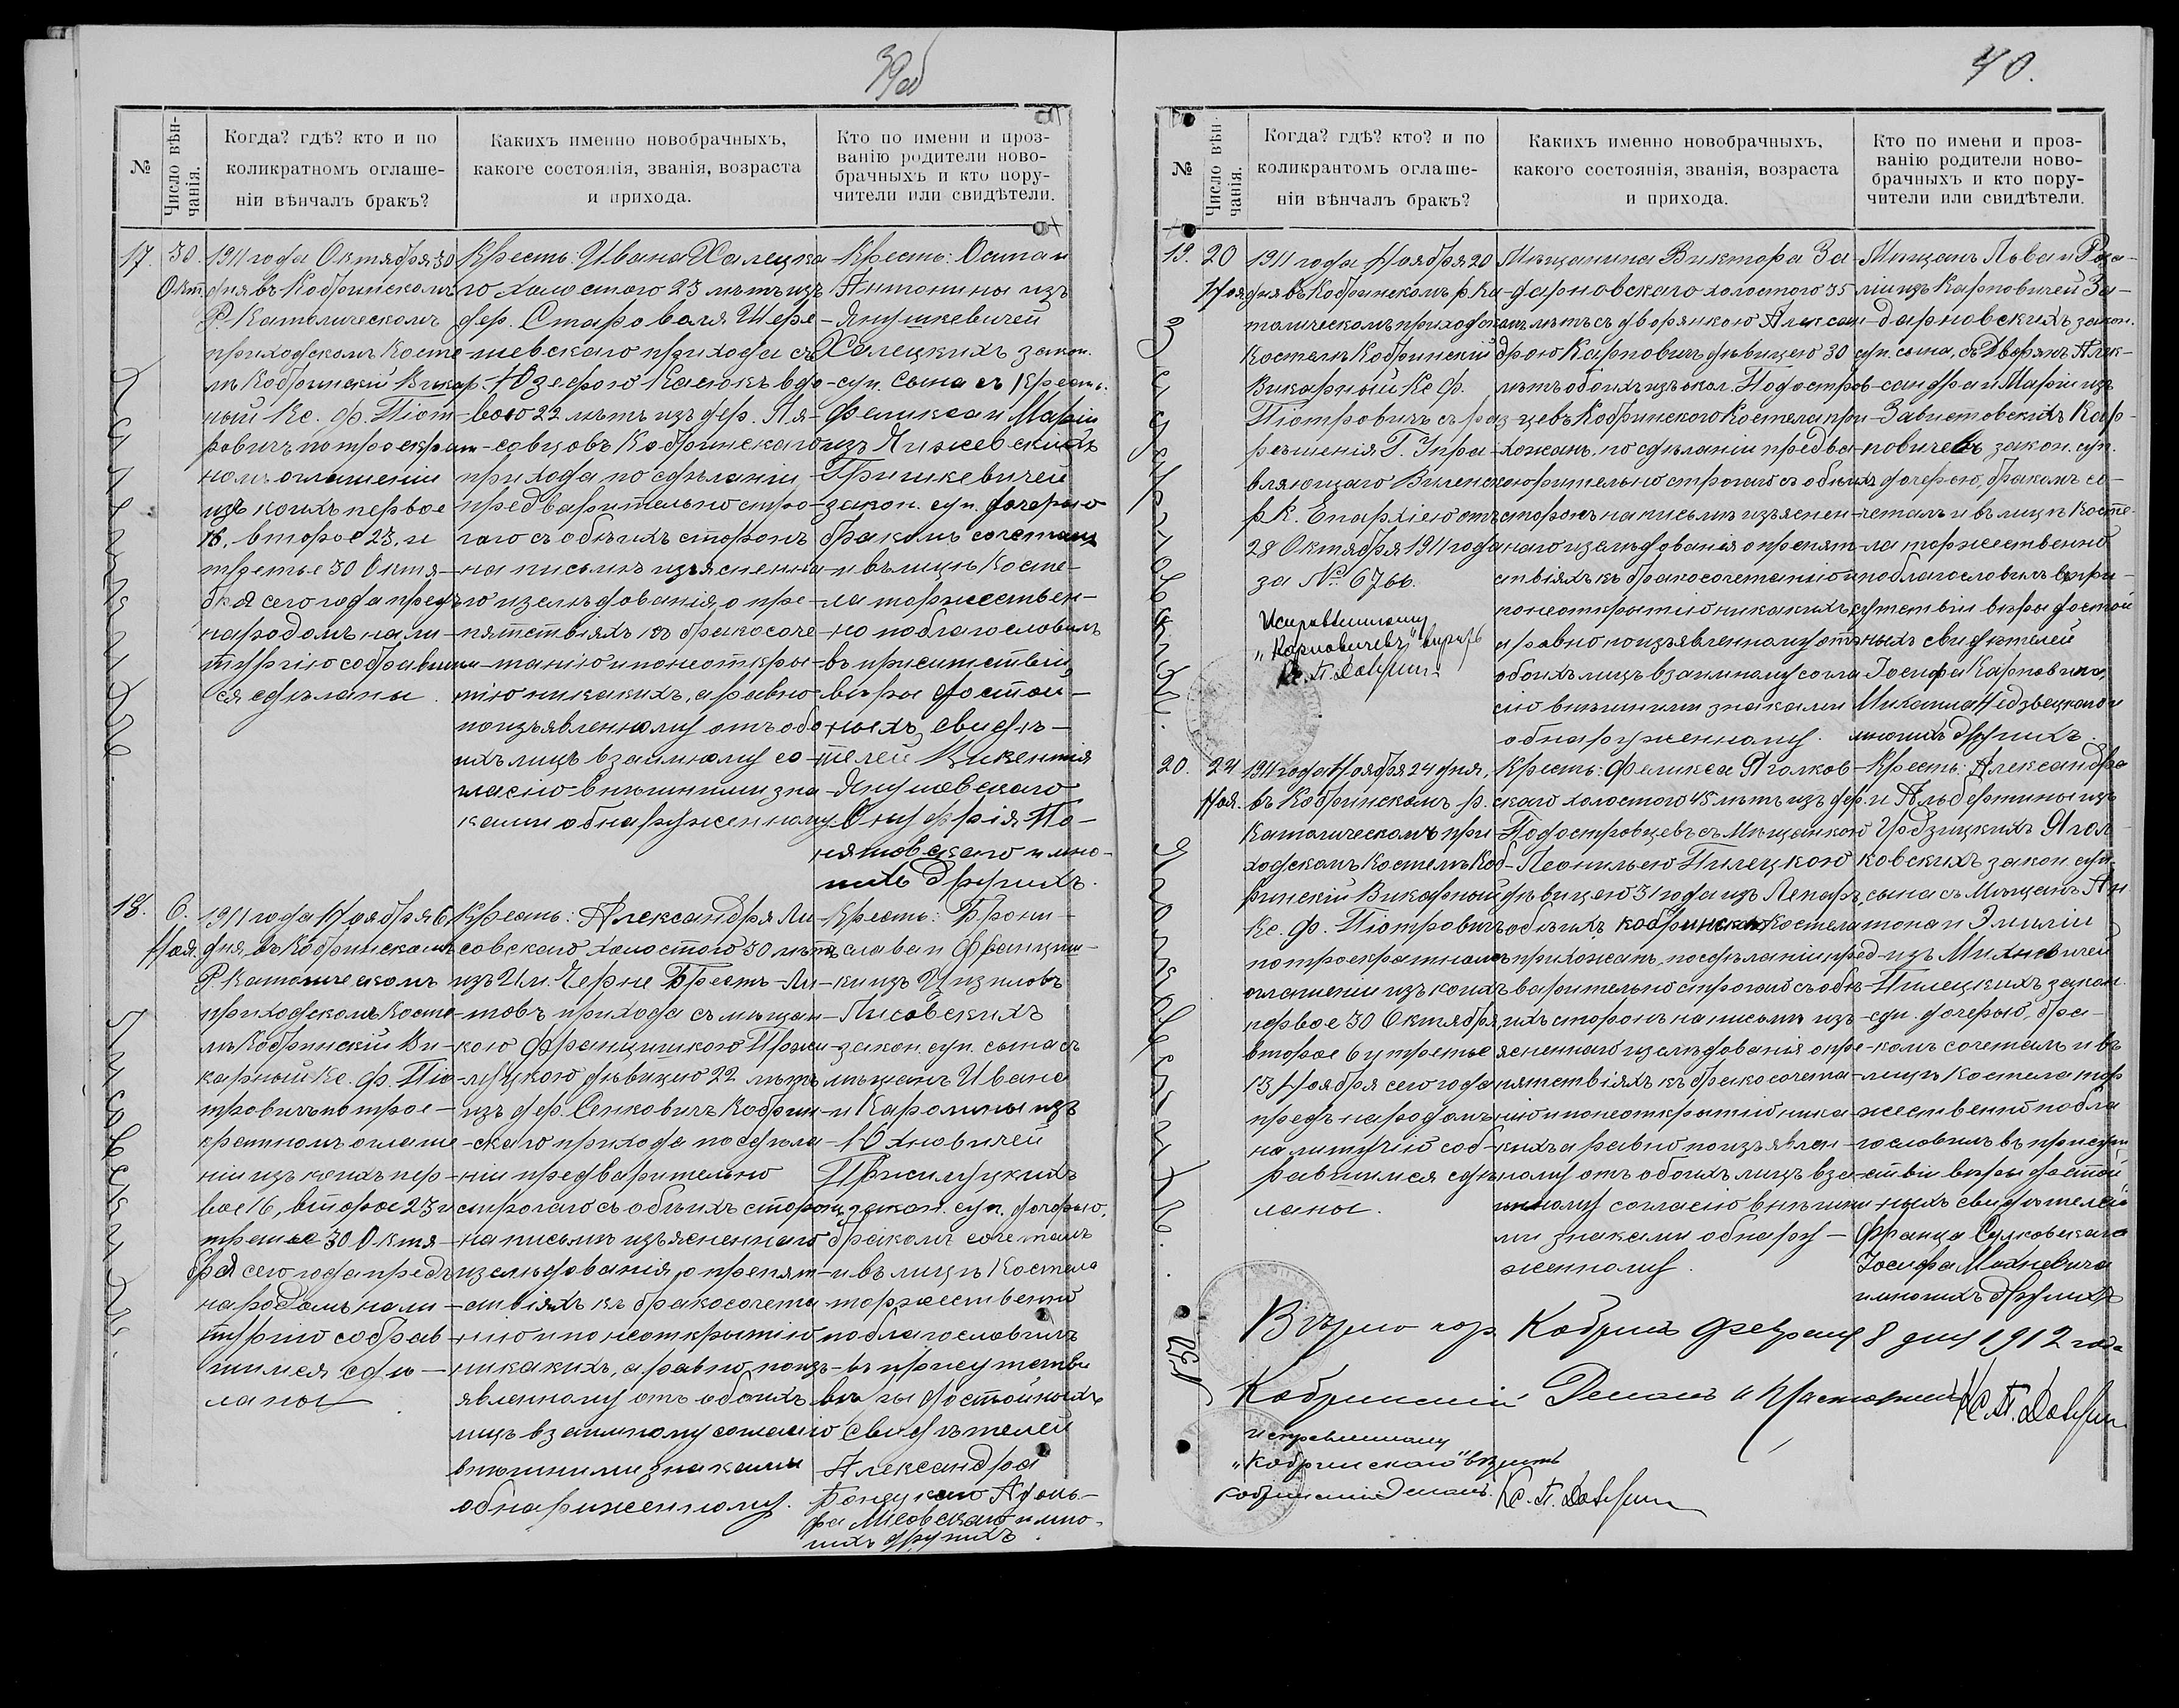 39об
№
Число вѣнчанія.
Когда? гдѣ? кто и по
коликратномъ оглаше-
ніи вѣнчалъ бракъ?
Какихъ именно новобрачныхъ,
какоге состоянія, званія, возраста
и прихода.
Кто по имени и проз-
ванію родители ново-
брачныхъ и кто пору-
чители или свидѣтели.
17.
30.
Окт.
1911 года Октября 30
дня въ Кобринскомъ
Р. Католическомъ
приходскомъ Косте-
лѣ Кобринскій Викар-
ный Кс. Ф. Піот-
ровичъ по троекрат-
номъ оглашеніи
изъ коихъ первое
16, второе 23, и
третье 30 Октя-
бря сего года предъ
народомъ на ли-
тургію собравшим-
ся сдѣланы.
Крест: Ивана Халецка-
го холостого 23 лѣтъ изъ
дер. Староволя Шере-
шевскаго прихода съ
Юзефою Касюкъ вдо-
вою 22 лѣтъ изъ дер. Пя-
совцовъ Кобринскаго
прихода по сдѣланіи
предварительно стро-
гаго съ обѣихъ сторонъ
на письмѣ изъясненна-
го изслѣдованія, о пре-
пятствіяхъ къ бракосоче-
танію и по неоткры-
тію никакихъ, а равно
по изъявленному отъ обо-
ихъ лицъ взаимному со-
гласію внѣшними зна-
ками обнаруженному
Крест: Осипа и
Антонины изъ
Янушкевичей
Халецкихъ закон.
суп. сына съ Крест:
Феликса и Маріи
изъ
Гришкевичей
закон. суп. дочерью
бракомъ сочеталъ
и въ лицѣ Косте-
ла торжествен-
но поблагословилъ
въ присутствіи
вѣры достой-
ныхъ свидѣ-
телей Викентія
Янушевскаго
Онуфрія По-
нятовскаго и мно-
гихъ другихъ.
18.
6.
Ноя.
1911 года Ноября 6
дня, въ Кобринскомъ
Р. Католическомъ
приходскомъ Косте-
лѣ Кобринскій Ви-
карный Кс. Ф. Піо-
тровичъ по трое-
кратномъ оглаше-
ніи изъ коихъ пер-
вое 16, второе 23 и
третье 30 Октя-
бря сего года предъ
народомъ на ли-
тургію собрав-
шимся сдѣ-
ланы
Крест: Александра Ли-
совскаго холостого 30 лѣтъ
изъ Им. Черне Брест-Ли-
товъ прихода съ мѣщан-
кою Францишкою Прыси-
луцкою дѣвицею 22 лѣтъ
изъ дер. Сенковичъ Кобрин-
скаго прихода по сдѣла-
ніи предварительно
строгаго съ обѣихъ сторонъ
на письмѣ изъясненнаго
изслѣдованія, о препят-
ствіяхъ къ бракосочета-
нію и по неоткрытію
никакихъ, а равно по изъ-
явленному отъ обоихъ
лицъ взаимному согласію
внѣшними знаками
обнаруженному.
Крест: Брони-
слава и Францин-
ки изъ
Лисовскихъ
закон. суп. сына съ
мѣщанъ Ивана
и Каролины изъ
Юхновичей
Присилуцкихъ
закон. суп. дочерью,
бракомъ сочеталъ
и въ лицѣ Костела
торжественно
поблагословилъ
въ присутстви
вѣры достойныхъ
свидѣтелей
Александра
Адоль-
фа Лисовскаго и мно-
гихъ другихъ.
40.
№
Число вѣнчанія.
Когда? гдѣ? кто? и по
коликрантомъ оглаше-
ніи вѣнчалъ бракъ?
Какихъ именно новобрачныхъ,
какого состоянія, званія, возраста
и прихода.
Кто по имени и проз-
ванію родители ново-
брачныхъ и кто пору-
чители или свидѣтели.
19.
20
Ноя
1911 года Ноября 20
дня въ Кобринскомъ р. Ка-
толическомъ приходскомъ
Костелѣ Кобринскій
Викарный Кс. Ф.
Піотровичъ съ раз-
рѣшенія Г. Упра-
вляющаго Виленскою
р. К. Епархіею отъ
28 Октября 1911 года
за № 6766.
Исправленному
„Карповичевъ" вѣрить
Кс. П.
Мѣщанина Виктора За-
дарновскаго холостого 35
лѣтъ съ дворянкою Алексан-
дрою Карповичъ дѣвицею 30
лѣтъ обоихъ изъ окол. Подостров-
цевъ Кобринскаго Костела при-
хожанъ, по сдѣланіи предва-
рительно строгаго съ обѣихъ
сторонъ на письмѣ изъяснен-
наго изслѣдованія о препят-
ствіяхъ къ бракосочетанію и
по неоткрытію никакихъ,
а равно по изъявленному отъ
обоихъ лицъ взаимному согла-
сію внѣшними знаками
обнаруженному.
Мѣщанъ Льва и Роза-
ліи изъ Карповичей За-
дарновскихъ закон.
суп. сына, съ Дворянъ Алек-
сандра и Маріи изъ
Завистовскихъ Кар-
повичевъ закон. суп.
дочерью, бракомъ со-
четалъ и въ лицѣ Косте-
ла торжественно
поблагословилъ въ при-
сутствіи вѣры достой
ныхъ свидѣтелей
Іосифа Карповича,
Михаила Недзвецкаго и
многихъ другихъ.
20.
24
Ноя.
1911 года Ноября 24 дня,
въ Кобринскомъ р.
Католическомъ при-
ходскомъ Костелѣ Коб-
ринскій Викарный
Кс. Ф. Піотровичъ
по троекратномъ
оглашеніи изъ коихъ
первое 30 Октября
второе 6 и третье
13 Ноября сего года
предъ народомъ
на литургію соб-
равшимся сдѣ-
ланы.
Крест: Феликса Яголков-
скаго холостого 45 лѣтъ изъ дер.
Подостровцевъ съ Мѣщанкою
Леонильею Пилецкою
дѣвицею 31 года изъ Лепаръ
обѣихъ кобринскаго Костела
прихожанъ, по сдѣланіи пред-
варительно строгаго съ обѣ-
ихъ сторонъ на письмѣ изъ-
ясненнаго изслѣдованія о пре-
пятствіяхъ къ бракосочета-
нію и по неоткрытію ника-
кихъ а равно по изъявлен-
ному отъ обоихъ лицъ вза-
имному согласію внѣшни
ми знаками обнару-
женному.
Крест: Александра
и Альбертины изъ
Гродзицкихъ Ягол-
ковскихъ закон. суп-
сына съ Мѣщанъ Ан-
тона и Эмиліи
изъ Михновичей
Пилецкихъ закон.
суп. дочерью, бра-
комъ сочеталъ и въ
лицѣ Костела тор
жественно побла
гословилъ въ присут
ствіи вѣры достой
ныхъ свидѣтелей
Франца Сулковскаго
Іосифа Михневича
и многихъ другихъ
Вѣрно гор. Кобринъ Февраля 8 дня 1912 года
Кобринскій Деканъ и Настоятель Кс. П.
исправленному
„Кобринскаго" вѣрить
Кобринскій Деканъ. Кс. П.